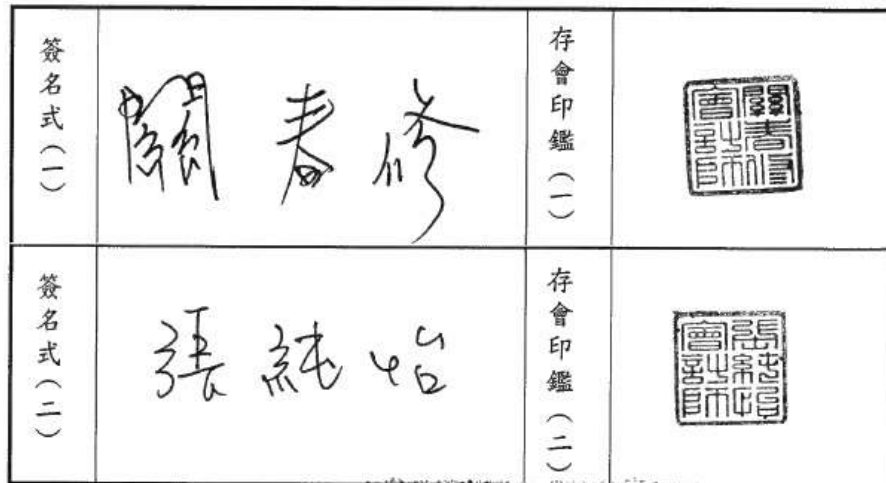 簽名式(一)
關春修
存會印鑑(一)
關春修會計師
簽名式(二)
張純怡
存會印鑑(二)
張純怡會計師